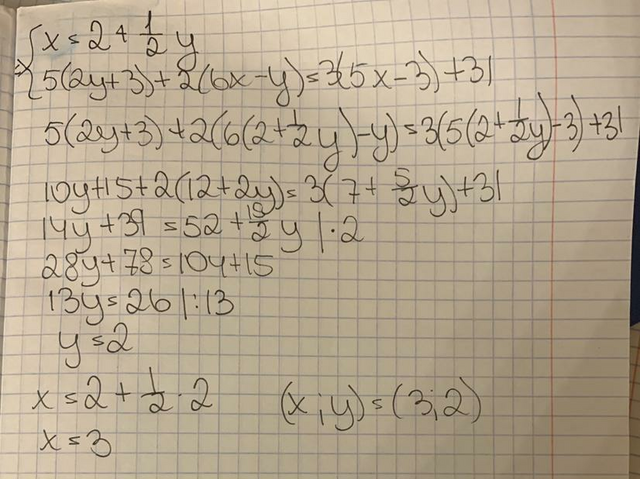 x = 2 + 1/2 y
5(2y+3) + 2(6x-y) = 3(5x-3) + 31
5(2y+3) + 2(6(2+1/2y)-y) = 3(5(2+1/2y)-3) + 31
10y+15+2(12+2y) = 3(7+5/2y)+31
14y+39 = 52+15/2y |·2
28y+78 = 104+15
13y = 26 |:13
y = 2
x = 2 + 1/2 · 2 (x;y) = (3;2)
x = 3